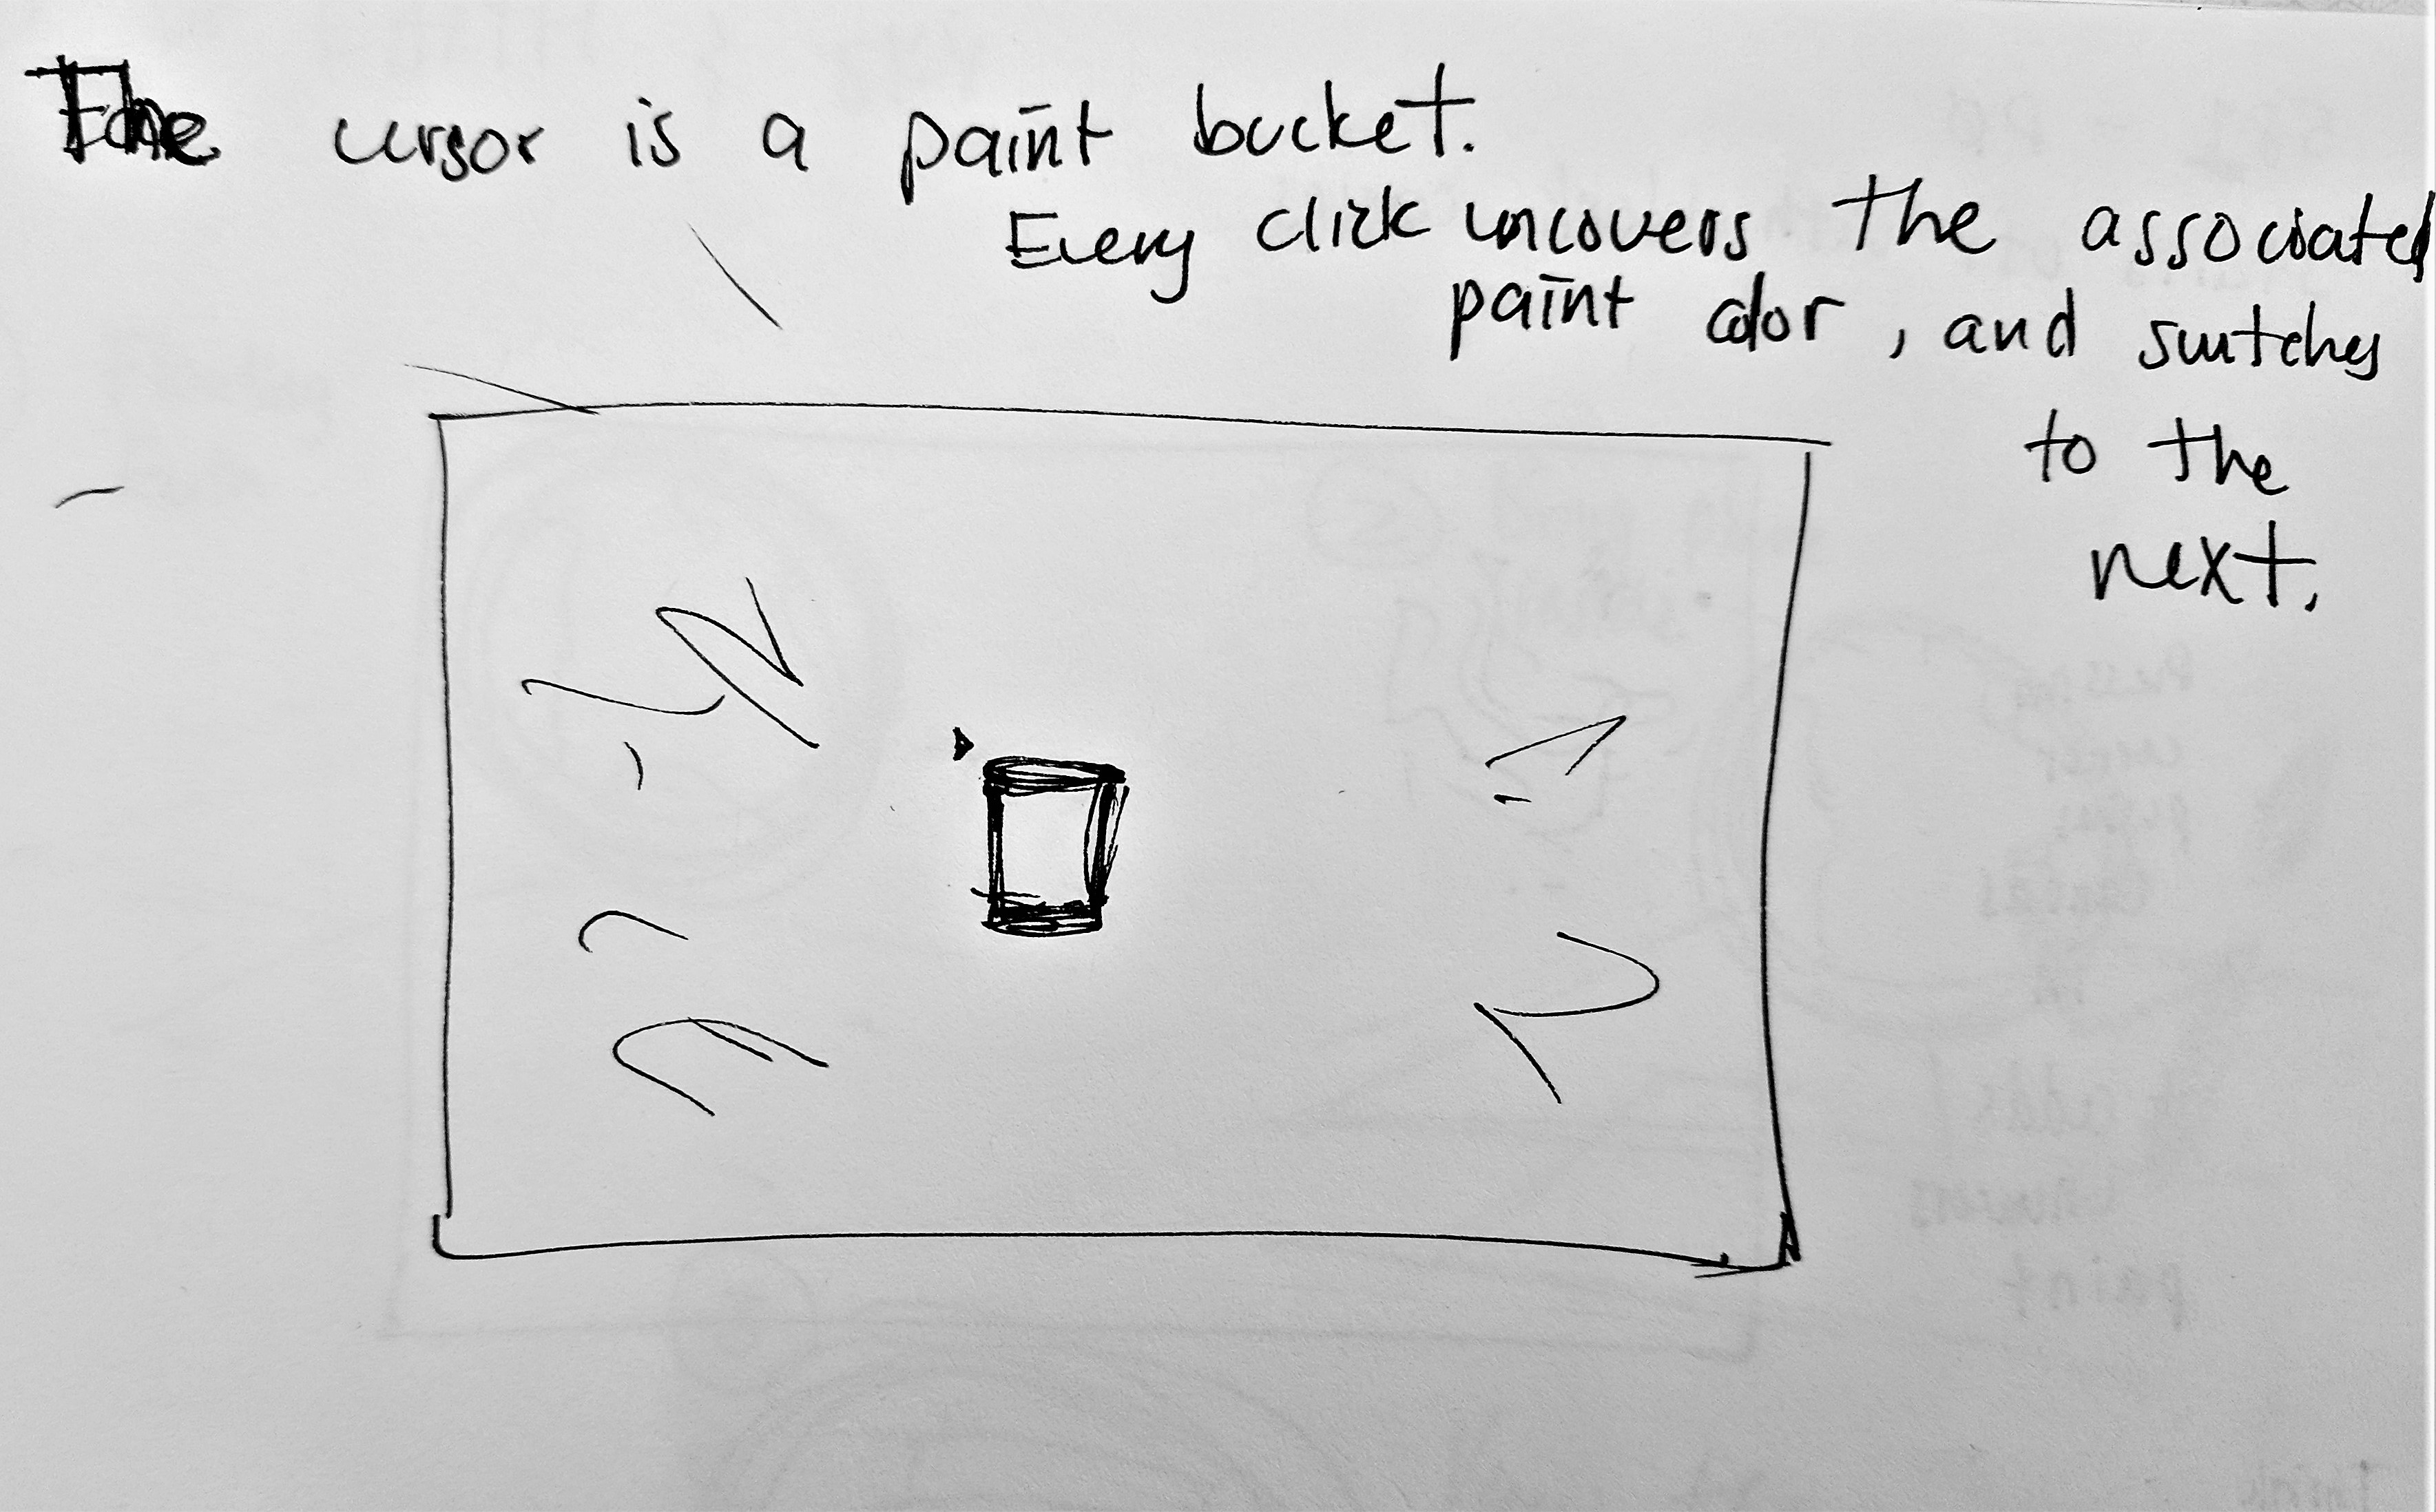 The cursor is a paint bucket.
Every click uncovers the associated
paint color, and switches
to the
next.